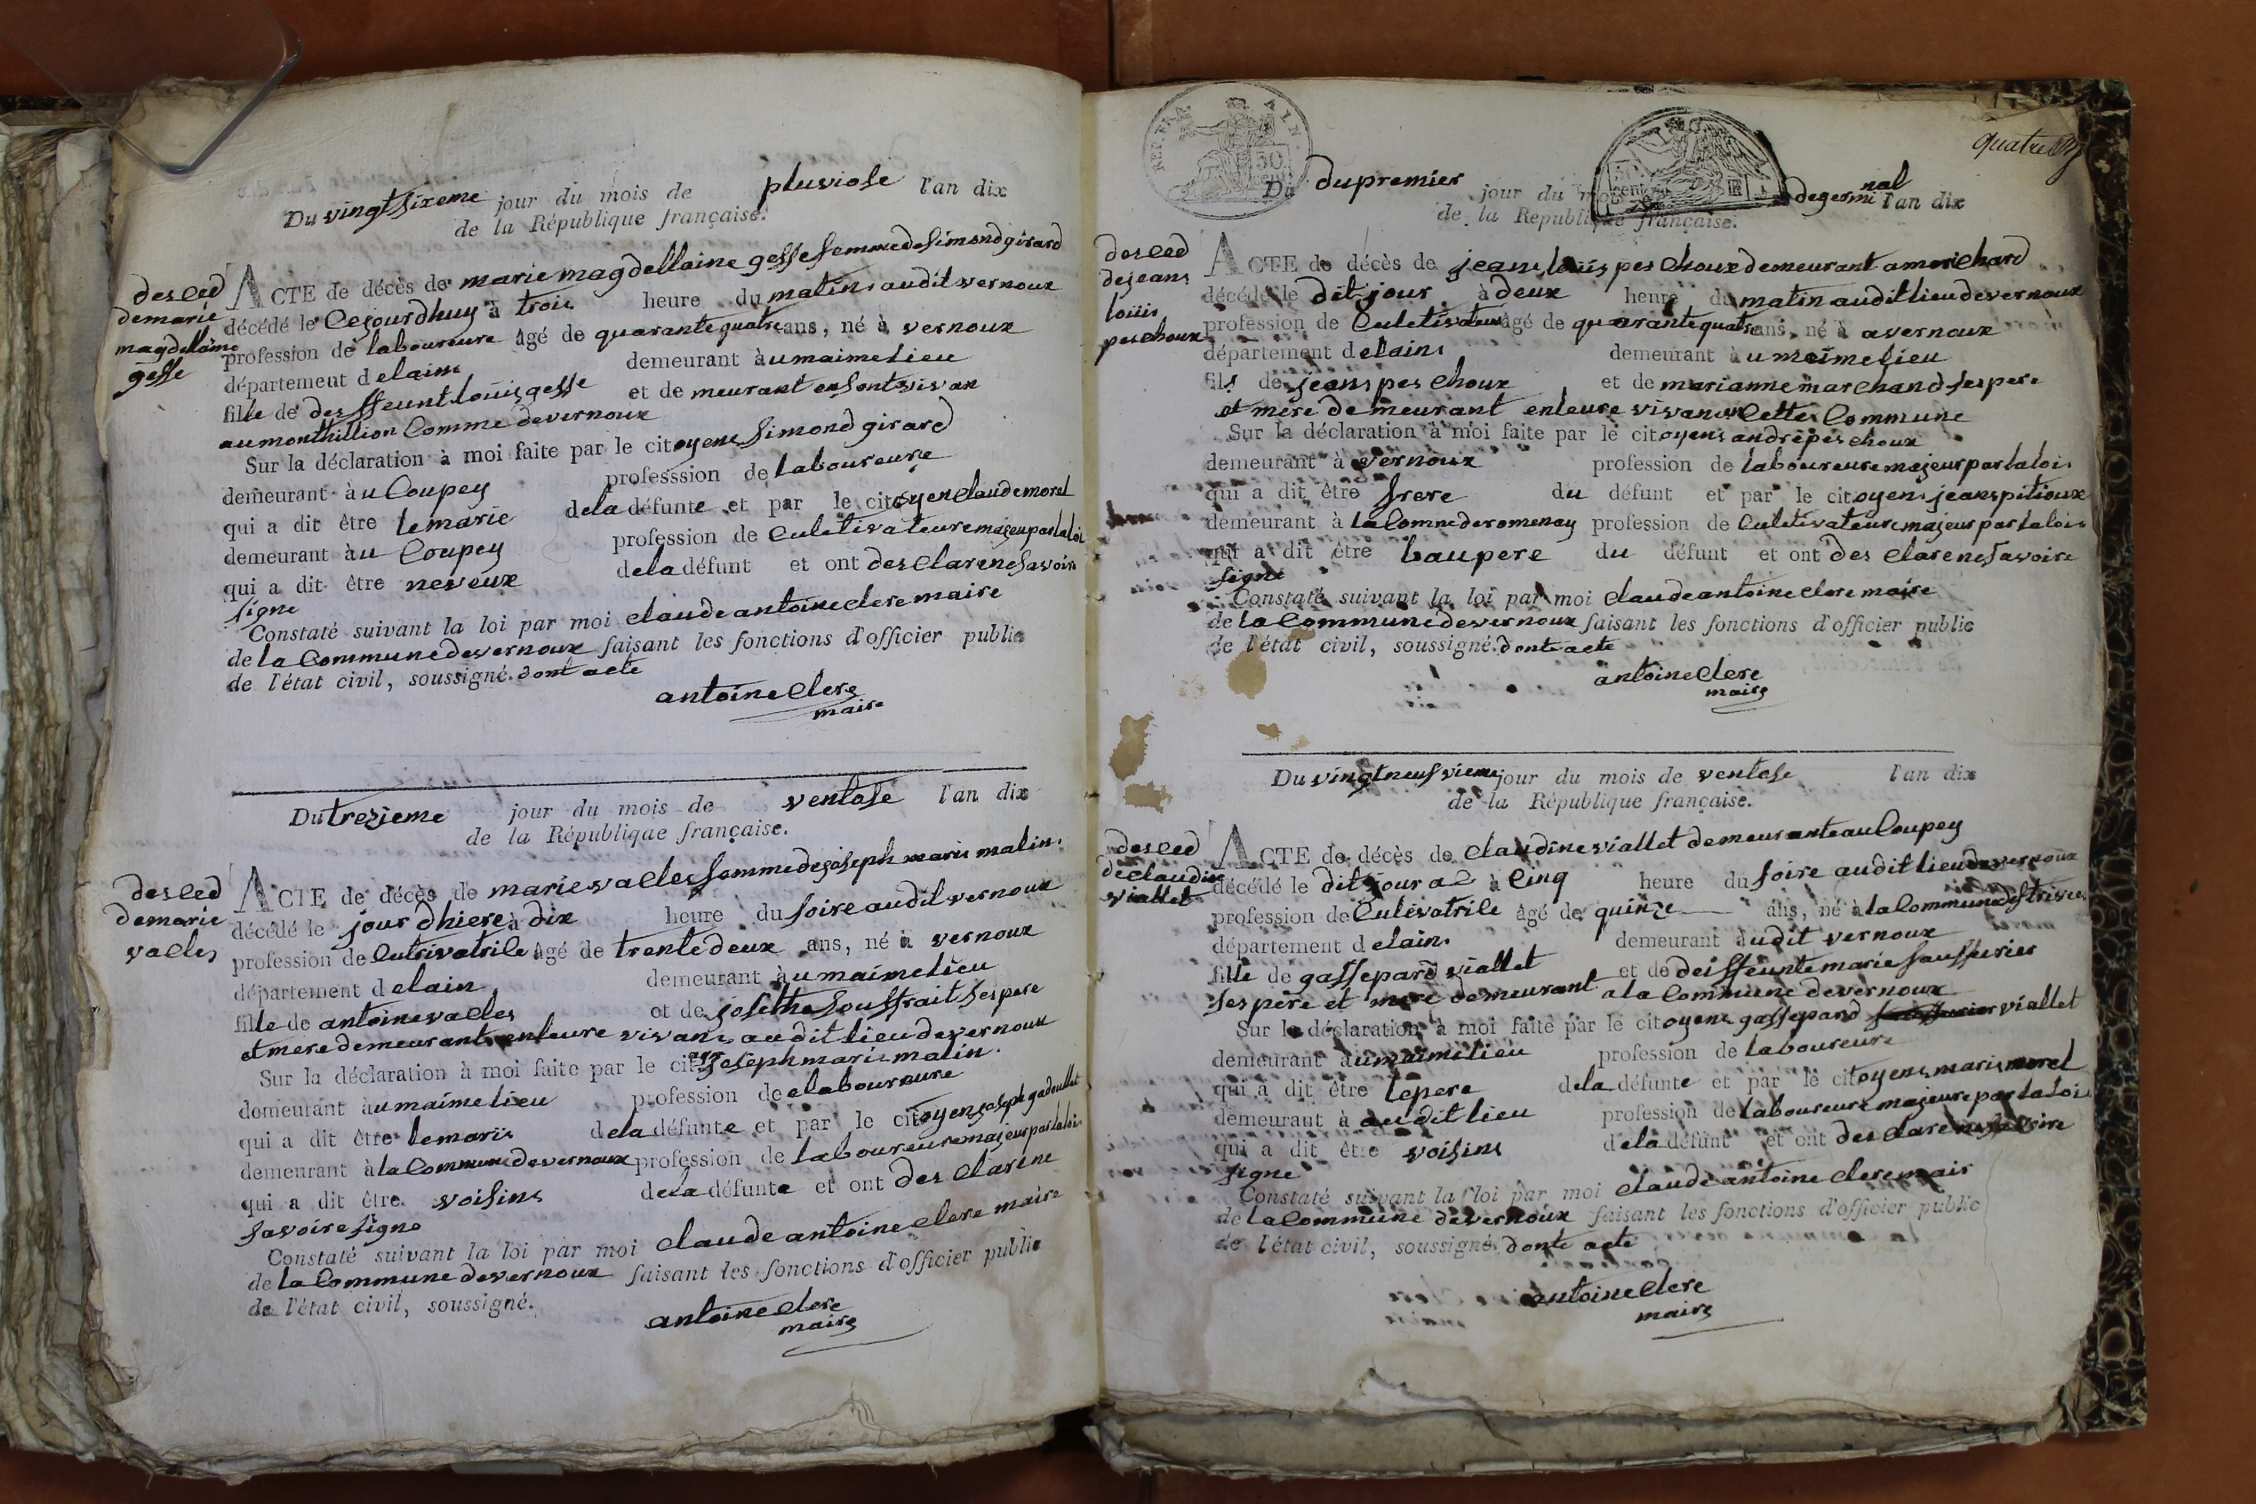 Du vingt sixeme jour du mois de pluviose l'an dix
de la République française.
desced
demarie
magdellaine
gesse
ACTE de décès de marie magdellaine gesse femme de simond girard
décédé le Cejourdhuy à trois heure du matin audit vernoux
profession de laboureure âgé de quarante quatre ans, né à vernoux
département d elain demeurant àu maime lieu
fille de desffeunt louis gesse et de meurant en sont vivan
au monthillion Comme de vernoux
Sur la déclaration à moi faite par le citoyens simond girard
demeurant àu Coupey professsion de laboureure
qui a dit être le marie dela défunte et par le citoyen claude morel
demeurant àu Coupey profession de Culetivateure majeur par la loi
qui a dit être neveux dela défunt et ont des Clare ne savoire
signe
Constaté suivant la loi par moi claude antoine clere maire
de la Commune de vernoux faisant les fonctions d'officier public
de l'état civil, soussigné. dont acte
antoine Clere
maire
Du trezieme jour du mois de ventose l'an dix
de la République française.
desced
demarie
valles
ACTE de décès de marie valles femme de joseph marie malin
décédé le jour dhiere à dix heure du soire audit vernoux
profession de Cutrivatrile âgé de trente deux ans, né à vernoux
département d elain demeurant àu maime lieu
fille de antoine valles et de josethe souffrait ses pere
et mere demeurant enleure vivans audit lieu de vernoux
Sur la déclaration à moi faite par le citoyen joseph marie malin
demeurant àu maime lieu profession de elaboureure
qui a dit être le maris dela défunte et par le citoyen joseph gadoullet
demeurant à la Commune de vernoux profession de laboureure majeur par la loi
qui a dit être voisins dela défunte et ont des clare ne
savoire signe
Constaté suivant la loi par moi claude antoine clere maire
de la Commune de vernoux faisant les fonctions d'officier public
de l'état civil, soussigné.
antoine Clere
maire
REP. FRA
50
cent
quatre
Du du premier jour du mois de germinal l'an dix
de la République française.
desced
de jeans
louis
peschoux
ACTE de décès de jeans louis pes choux demeurant a morichard
décédé le dit jour à deux heure du matin audit lieu de vernoux
profession de Culetivateur âgé de quarante quatre ans, né à avernoux
département d elains demeurant àu maime lieu
fils de jeans pes choux et de marianne marchand ses pere
et mere demeurant enleure vivan en Cette Commune
Sur la déclaration à moi faite par le citoyens andre pes choux
demeurant à vernoux profession de laboureure majeur par la loi
qui a dit être frere du défunt et par le citoyens jeans pitioux
demeurant à la Comme de romenay profession de Culetivateure majeur par la loi
qui a dit être baupere du défunt et ont des clare ne savoire
signe
Constaté suivant la loi par moi claude antoine clere maire
de la Commune de vernoux faisant les fonctions d'officier public
de l'état civil, soussigné. dont acte
antoine Clere
maire
Du vingt neuf vieme jour du mois de ventose l'an dix
de la République française.
desced
de claudine
viallet
ACTE de décès de claudine viallet demeurante au Coupey
décédé le dit jour à Cinq heure du soire audit lieu de vernoux
profession de Culevatrile âgé de quinze ans, né à la Commune
département d elains demeurant àudit vernoux
fille de gassepard viallet et de deisffeunte marie sauffurier
ses père et mere demeurant a la Commune de vernoux
Sur la déclaration à moi faite par le citoyens gassepard viallet
demeurant àu maime lieu profession de laboureure
qui a dit être le pere dela défunte et par le citoyens maris morel
demeurant à audit lieu profession de laboureure majeure par la loi
qui a dit être voisins dela défunt et ont des clare ne savoire
signe
Constaté suivant la loi par moi claude antoine clere mair
de la Commune de vernoux faisant les fonctions d'officier public
de l'état civil, soussigné. dont acte
antoine Clere
maire